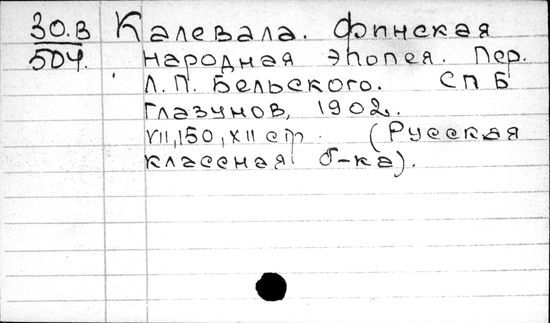 30.В Калевала. Финская
504. народная эпопея. Пер.
Л.П. Бельского. СПБ
Глазунов, 1902.
VII, 150, XII стр. (Русская
классная б-ка).